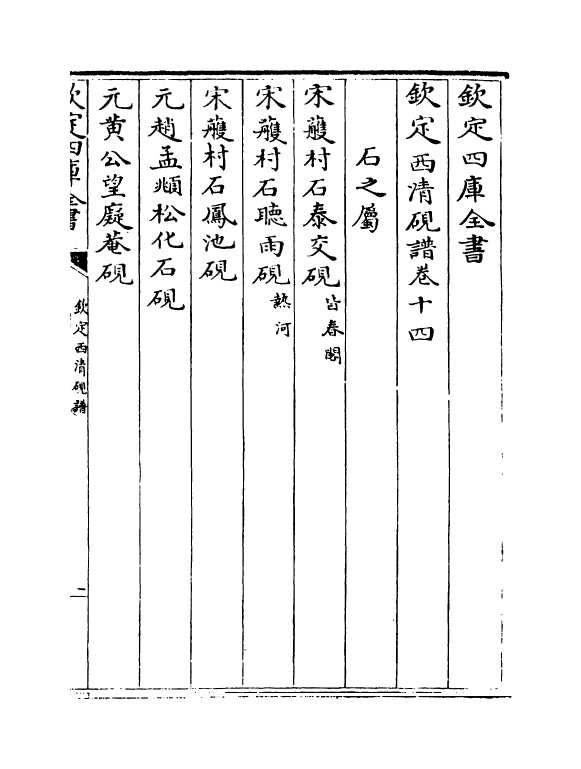 欽定四庫全書
欽定西清硯譜卷十四
石之屬
宋蘿村石泰交硯皆春閣
宋蘿村石聽雨硯熱河
宋蘿村石鳳池硯
元趙孟頫松化石硯
元黃公望癡菴硯
欽定四庫全書
欽定西清硯譜
二